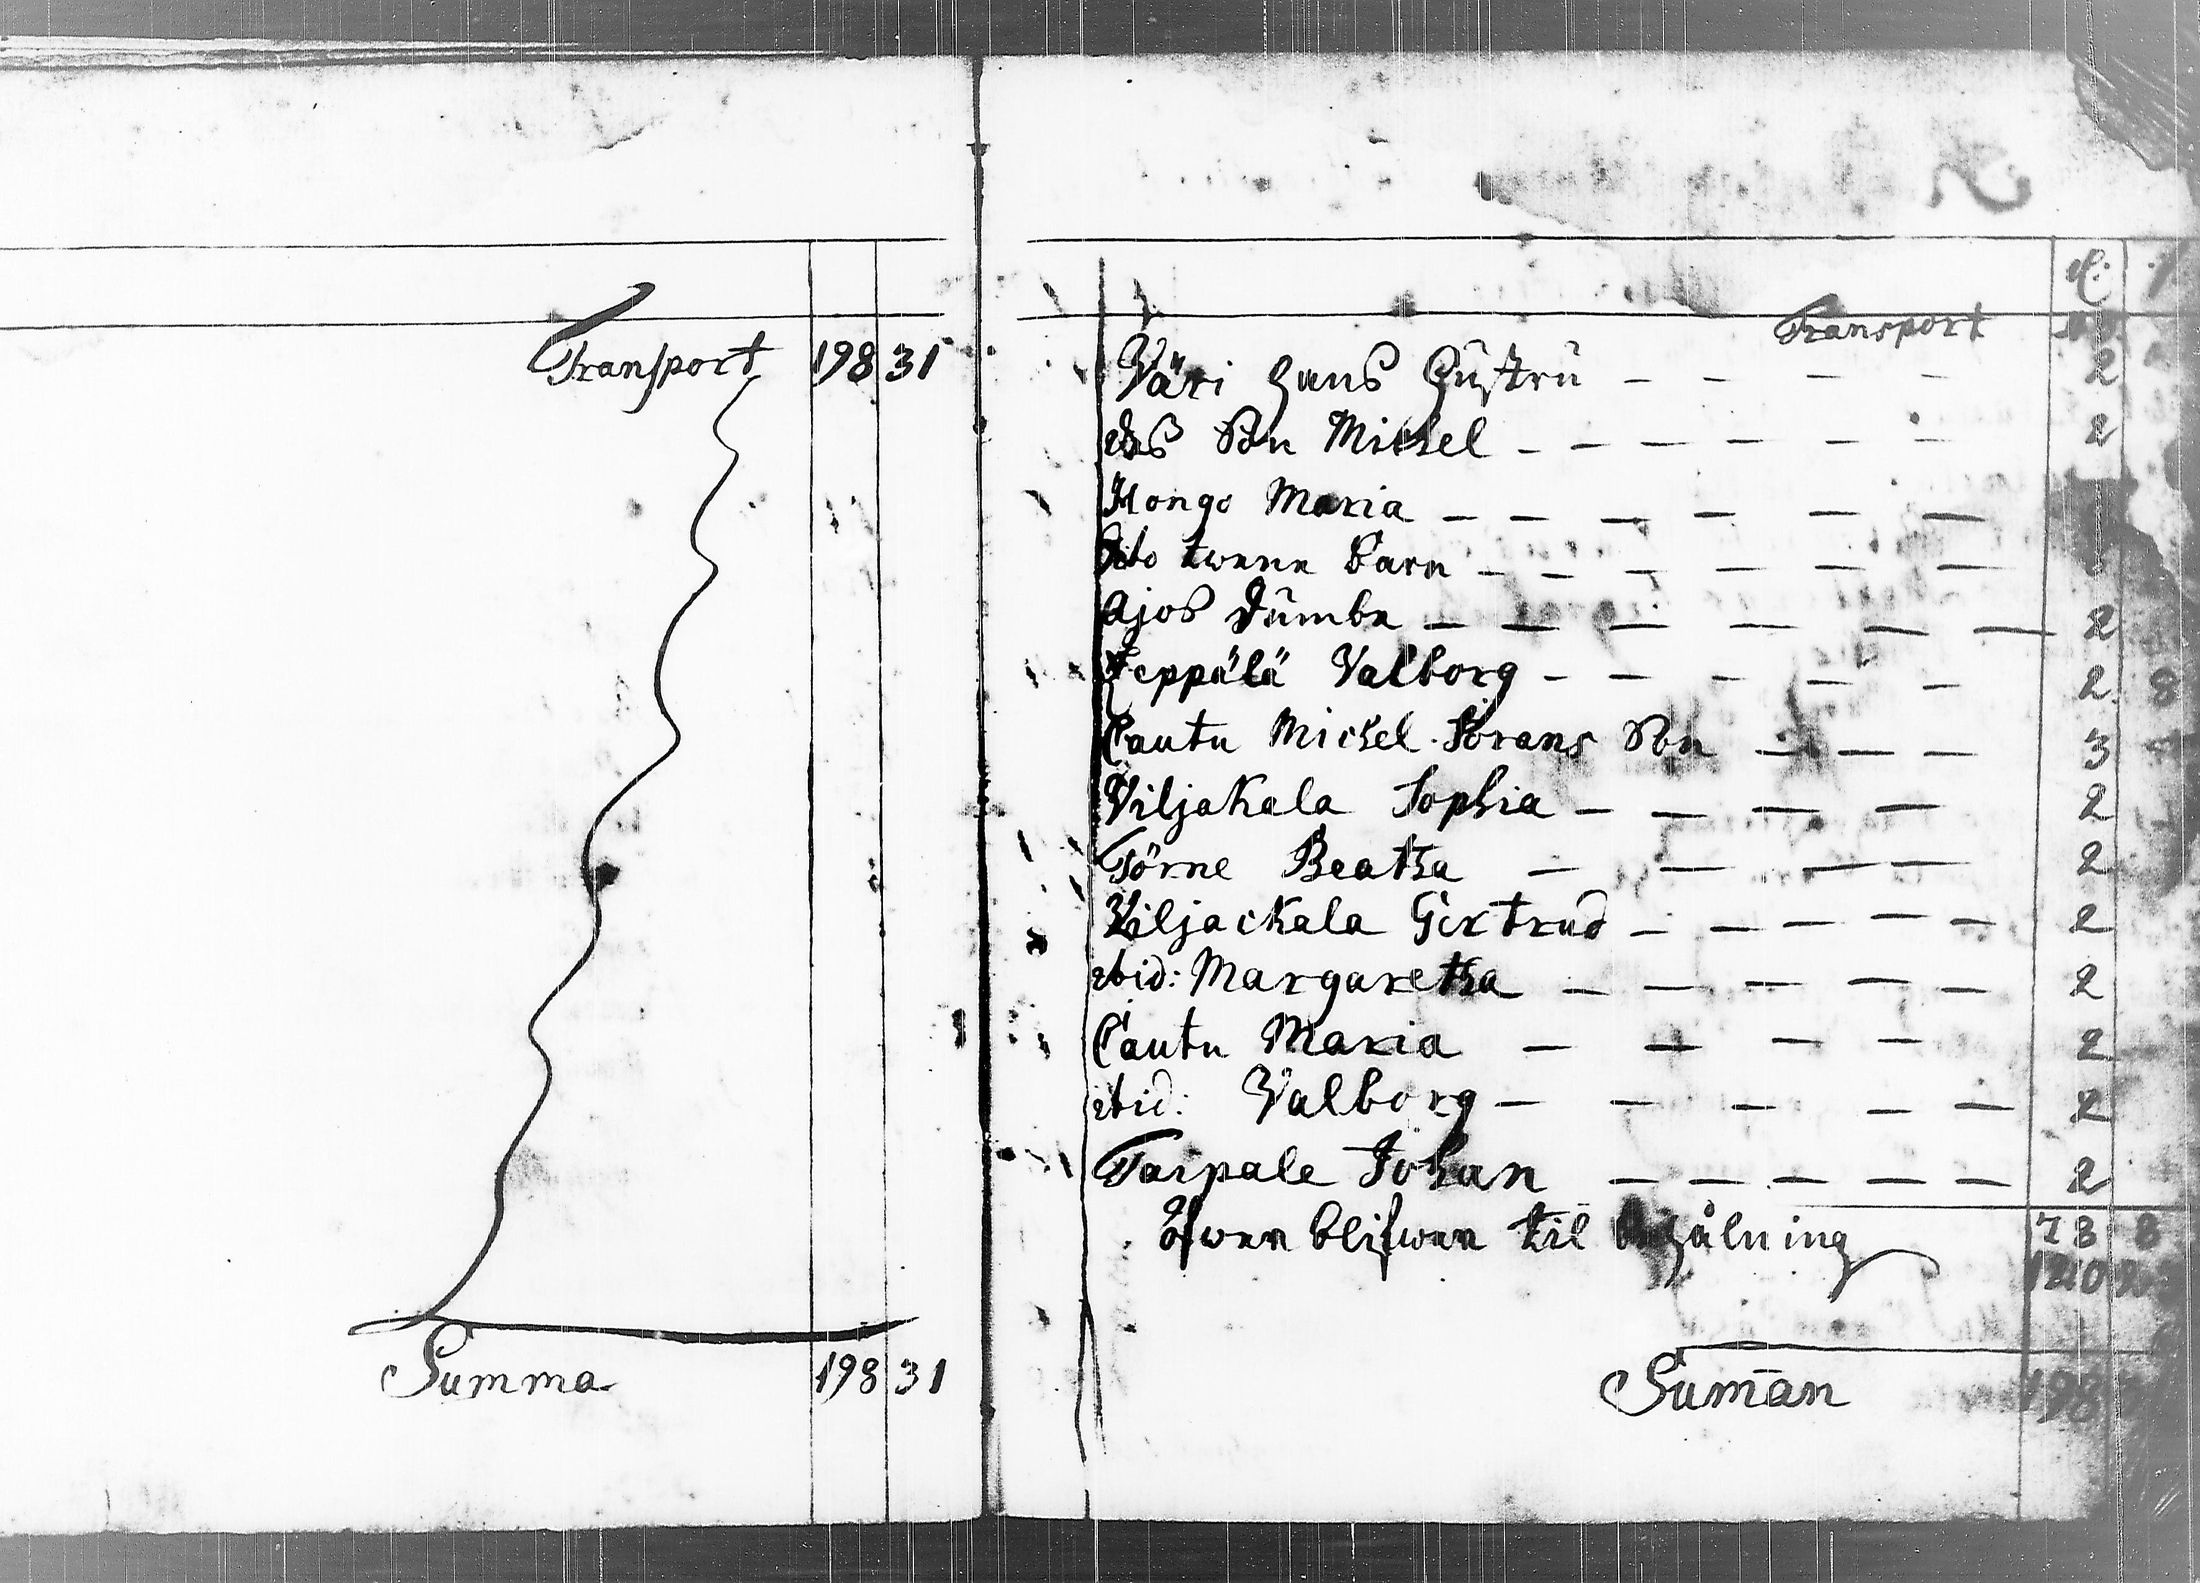 Transport 198 31
Summa 198 31
Transport
Väri Hans Hustru 2
dess Son Michel 2
Hongo Maria
dito twenne Barn
Ajos Dumbe 2
Seppälä Valborg 2 8
Cautu Michel Görans Son 3
Viljakala Sophia 2
Törne Beatha 2
Viljackala Gertrud 2
ibid: Margaretha 2
Cautu Maria 2
ibid: Valborg 2
Tarpale Johan 2
Öfwer blifwer til 73 8
Suman 198